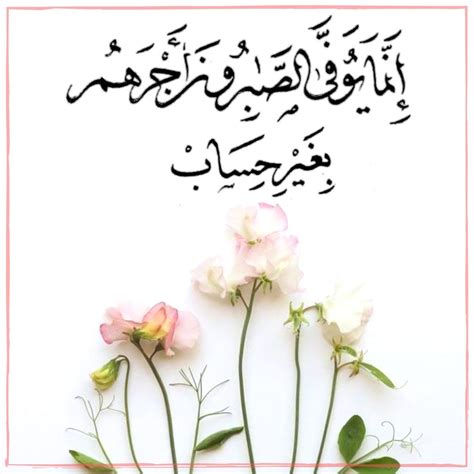 إِنَّمَا يُوَفَّى الصَّابِرُونَ أَجْرَهُمْ
بِغَيْرِ حِسَابْ